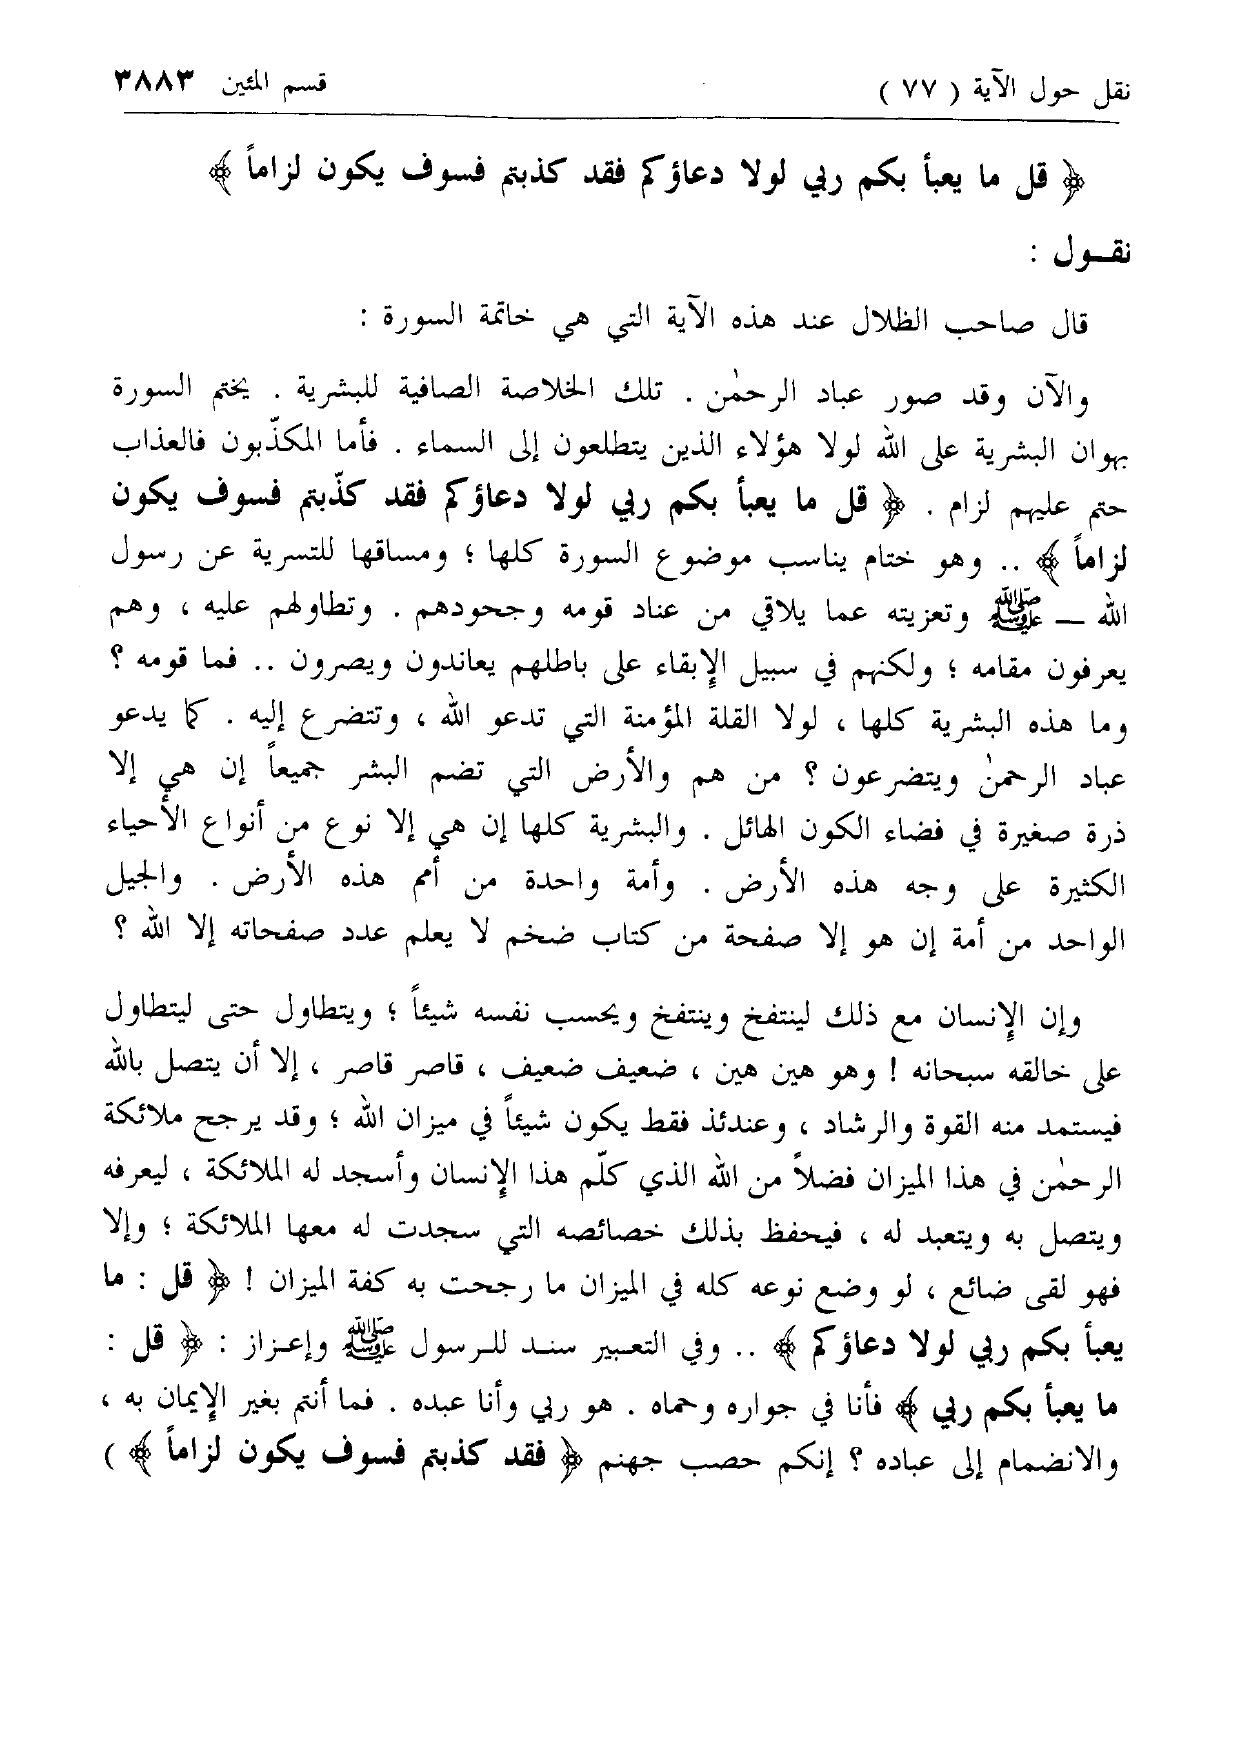 نقل حول الآية ( ٧٧ ) قسم المئين ٣٨٨٣
﴿ قل ما يعبأ بكم ربي لولا دعاؤكم فقد كذبتم فسوف يكون لزاماً ﴾
نقـول :
قال صاحب الظلال عند هذه الآية التي هي خاتمة السورة :
والآن وقد صور عباد الرحمٰن . تلك الخلاصة الصافية للبشرية . يختم السورة
بهوان البشرية على الله لولا هؤلاء الذين يتطلعون إلى السماء . فأما المكذّبون فالعذاب
حتم عليهم لزام . ﴿ قل ما يعبأ بكم ربي لولا دعاؤكم فقد كذّبتم فسوف يكون
لزاماً ﴾ .. وهو ختام يناسب موضوع السورة كلها ؛ ومساقها للتسرية عن رسول
الله ـ ﷺ وتعزيته عما يلاقي من عناد قومه وجحودهم . وتطاولهم عليه ، وهم
يعرفون مقامه ؛ ولكنهم في سبيل الإبقاء على باطلهم يعاندون ويصرون .. فما قومه ؟
وما هذه البشرية كلها ، لولا القلة المؤمنة التي تدعو الله ، وتتضرع إليه . كما يدعو
عباد الرحمٰن ويتضرعون ؟ من هم والأرض التي تضم البشر جميعاً إن هي إلا
ذرة صغيرة في فضاء الكون الهائل . والبشرية كلها إن هي إلا نوع من أنواع الأحياء
الكثيرة على وجه هذه الأرض . وأمة واحدة من أمم هذه الأرض . والجيل
الواحد من أمة إن هو إلا صفحة من كتاب ضخم لا يعلم عدد صفحاته إلا الله ؟
وإن الإنسان مع ذلك لينتفخ وينتفخ ويحسب نفسه شيئاً ؛ ويتطاول حتى ليتطاول
على خالقه سبحانه ! وهو هين هين ، ضعيف ضعيف ، قاصر قاصر ، إلا أن يتصل بالله
فيستمد منه القوة والرشاد ، وعندئذ فقط يكون شيئاً في ميزان الله ؛ وقد يرجح ملائكة
الرحمٰن في هذا الميزان فضلاً من الله الذي كلّم هذا الإنسان وأسجد له الملائكة ، ليعرفه
ويتصل به ويتعبد له ، فيحفظ بذلك خصائصه التي سجدت له معها الملائكة ؛ وإلا
فهو لقى ضائع ، لو وضع نوعه كله في الميزان ما رجحت به كفة الميزان ! ﴿ قل : ما
يعبأ بكم ربي لولا دعاؤكم ﴾ .. وفي التعبير سند للرسول ﷺ وإعزاز : ﴿ قل :
ما يعبأ بكم ربي ﴾ فأنا في جواره وحماه . هو ربي وأنا عبده . فما أنتم بغير الإيمان به ،
والانضمام إلى عباده ؟ إنكم حصب جهنم ﴿ فقد كذبتم فسوف يكون لزاماً ﴾ )